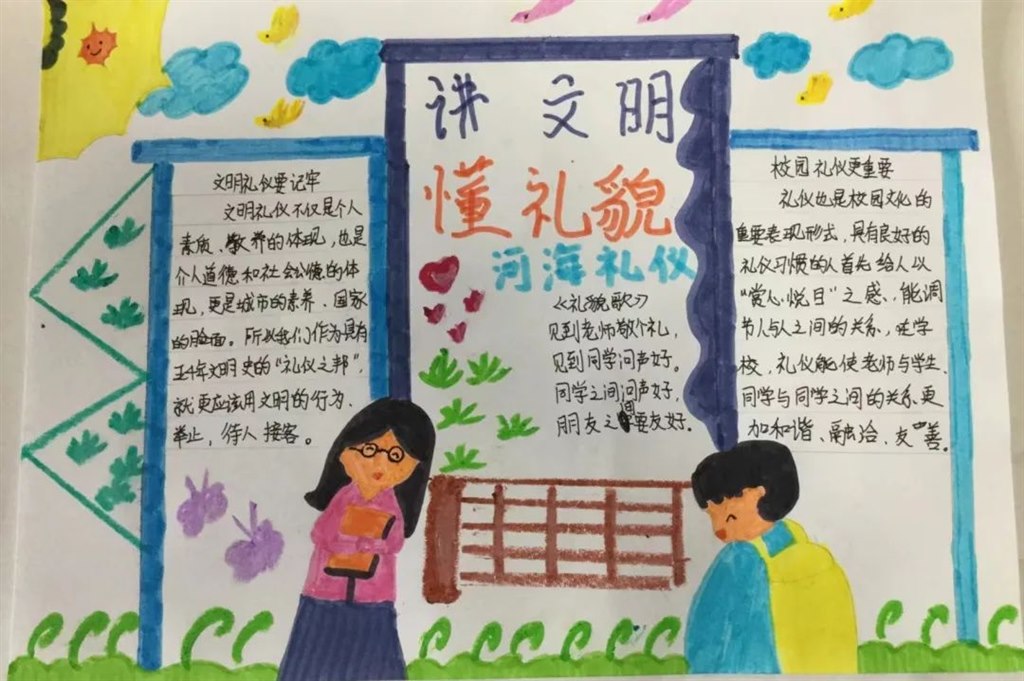 讲 文 明
懂礼貌
河海礼仪
文明礼仪要记牢
文明礼仪不仅是个人
素质、教养的体现,也是
个人道德和社会公德的体
现,更是城市的素养、国家
的脸面。所以我们作为具有
五千年文明史的“礼仪之邦”,
就更应该用文明的行为、
举止,待人接客。
《礼貌歌》
见到老师敬个礼,
见到同学问声好。
同学之间问声好,
朋友之间要友好。
校园礼仪更重要
礼仪也是校园文化的
重要表现形式,具有良好的
礼仪习惯的人首先给人以
“赏心悦目”之感,能调
节人与人之间的关系,在学
校,礼仪能使老师与学生、
同学与同学之间的关系更
加和谐、融洽、友善。